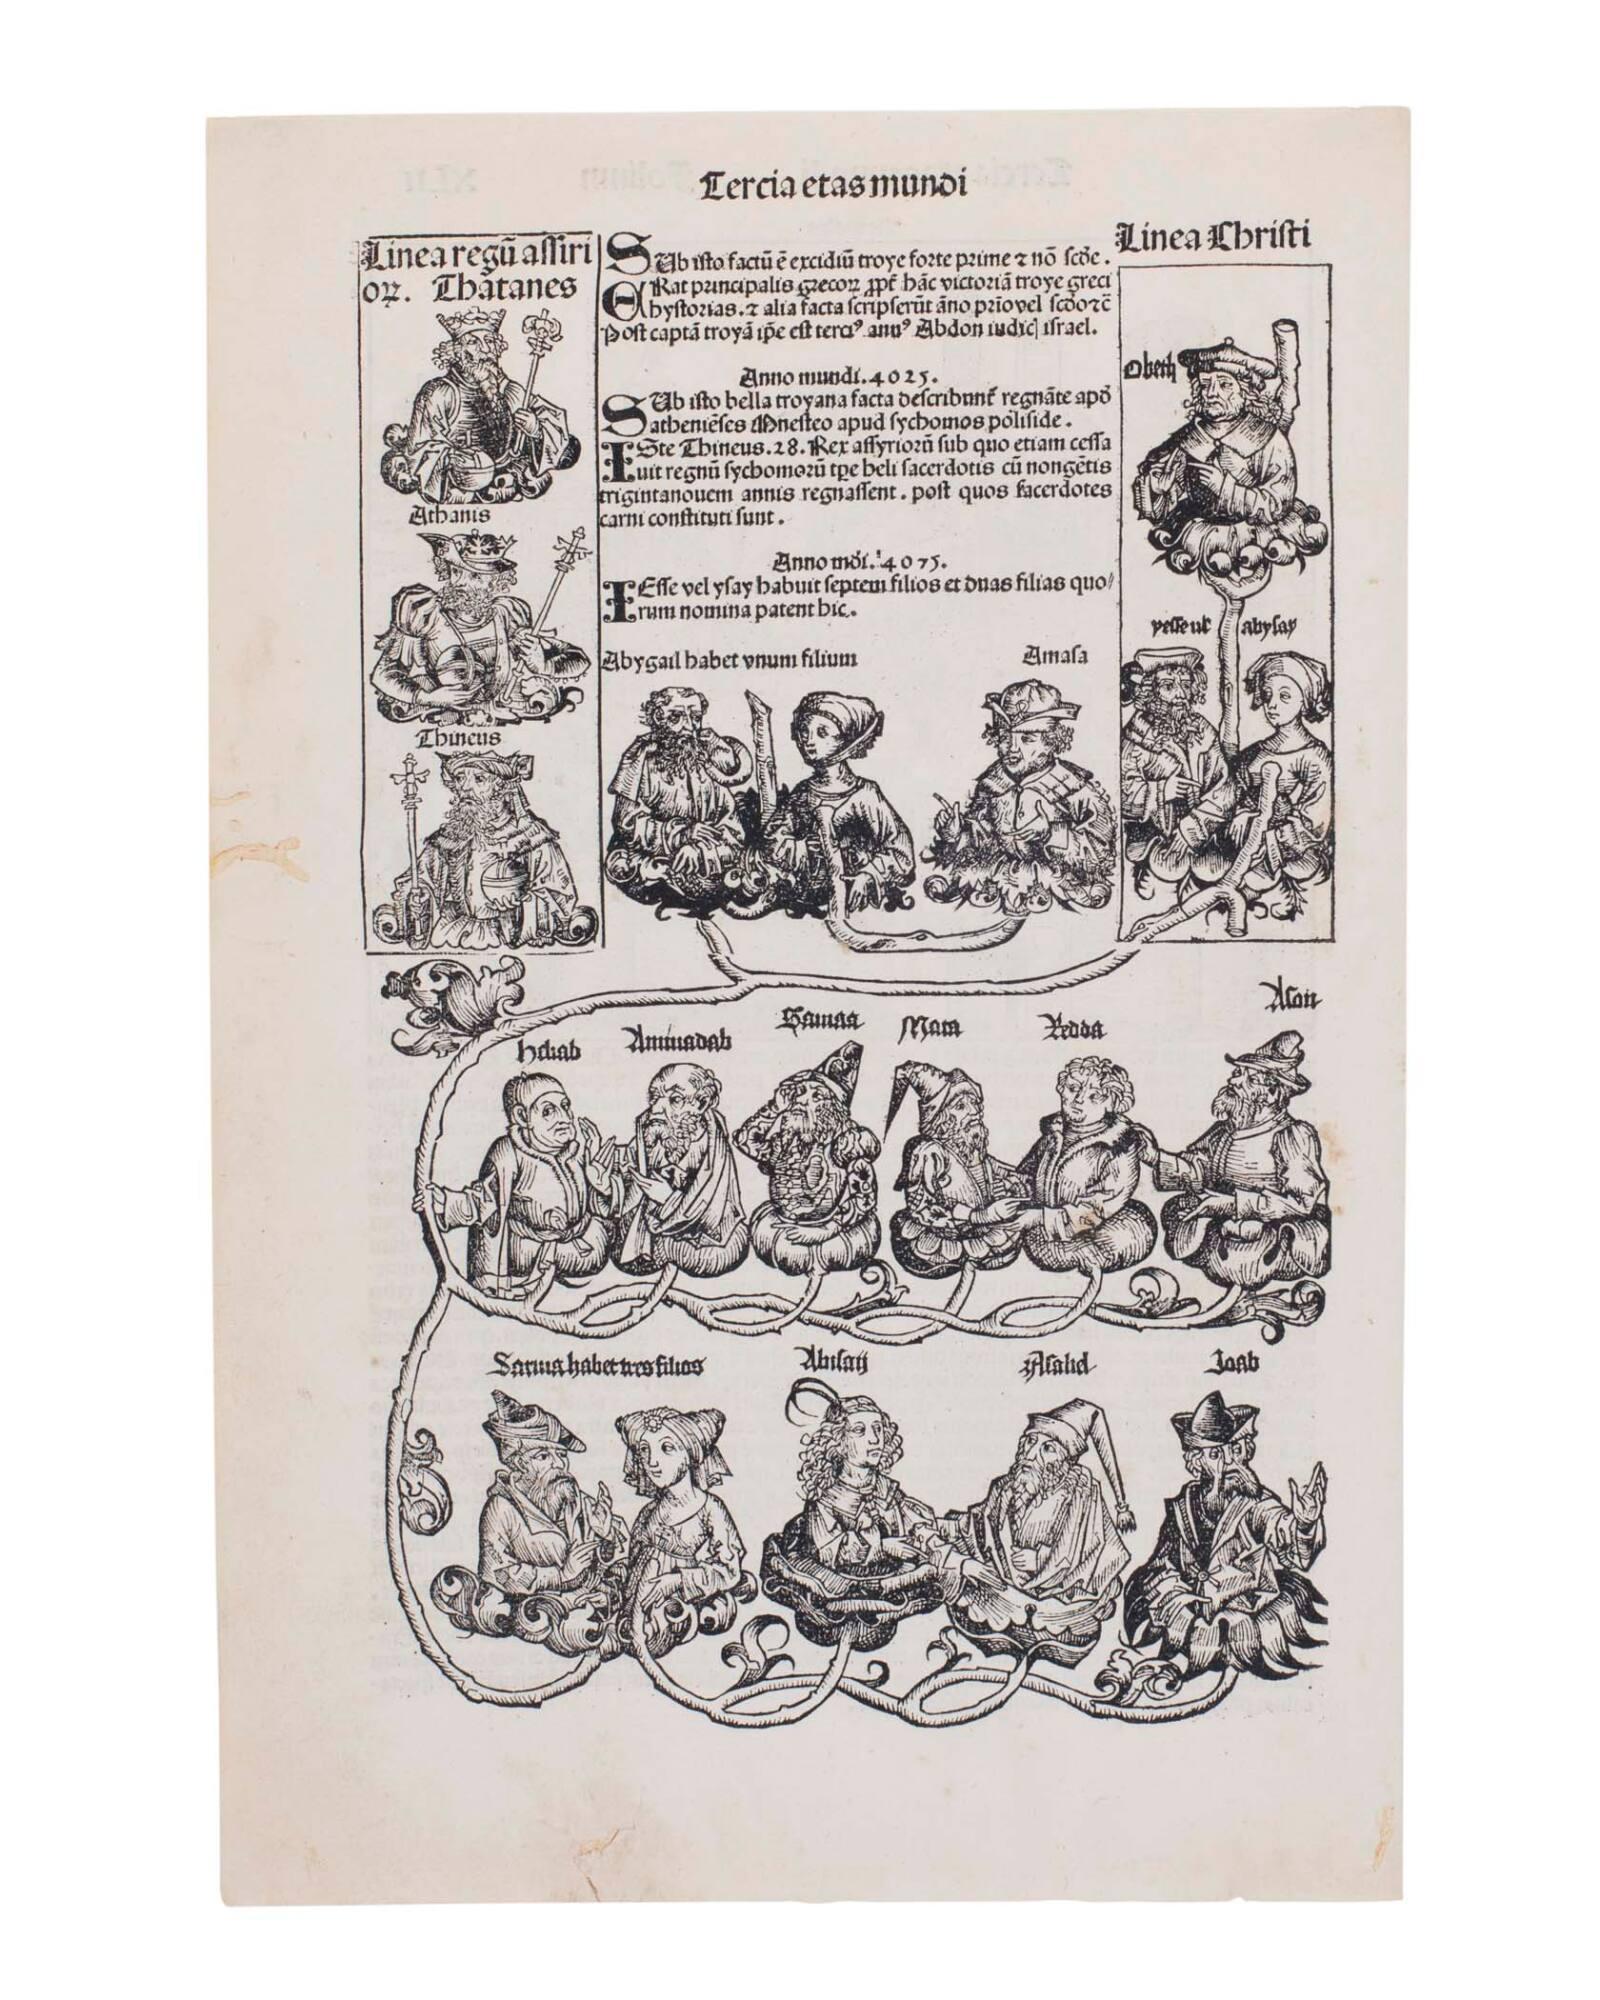 Tercia etas mundi
Linea regū assiri
oꝝ. Thātanes
Athanis
Thineus
SUb isto factū ē excidiū troye forte prime ⁊ nō scd̄e.
ERat principalis grecoꝝ ꝓpt̄ hāc victoriā troye greci
hystorias. ⁊ alia facta scripserūt āno prīo vel scd̄o ⁊c̄
Post captā troyā ip̄e est terciꝰ annꝰ Abdon iudic̄ israel.
Anno mundi. 4025.
SUb isto bella troyana facta describunt̄ regnāte apd̄
atheniēses Mnesteo apud sychomos poliside.
ISte Thineus. 28. Rex assyriorū sub quo etiam cessa
uit regnū sychomorū tꝑe heli sacerdotis cū nongētis
trigintanouem annis regnassent. post quos sacerdotes
carni constituti sunt.
Anno mdi. 4075.
IEsse vel ysay habuit septem filios et duas filias quo/
rum nomina patent hic.
Abygail habet vnum filium
Amasa
Linea Christi
Obeth
yesse ul'
abysay
Heliab
Aminadab
Samaa
Mata
Redda
Ason
Saruia habet tres filios
Abisaij
Asahel
Joab